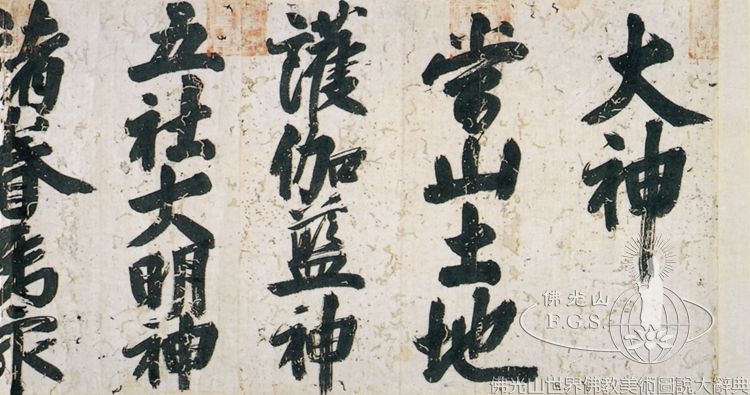 大神
當山土地
護伽藍神
五社大明神
諸眷
佛光山
F.G.S.
佛光山世界佛教美術圖說大辭典